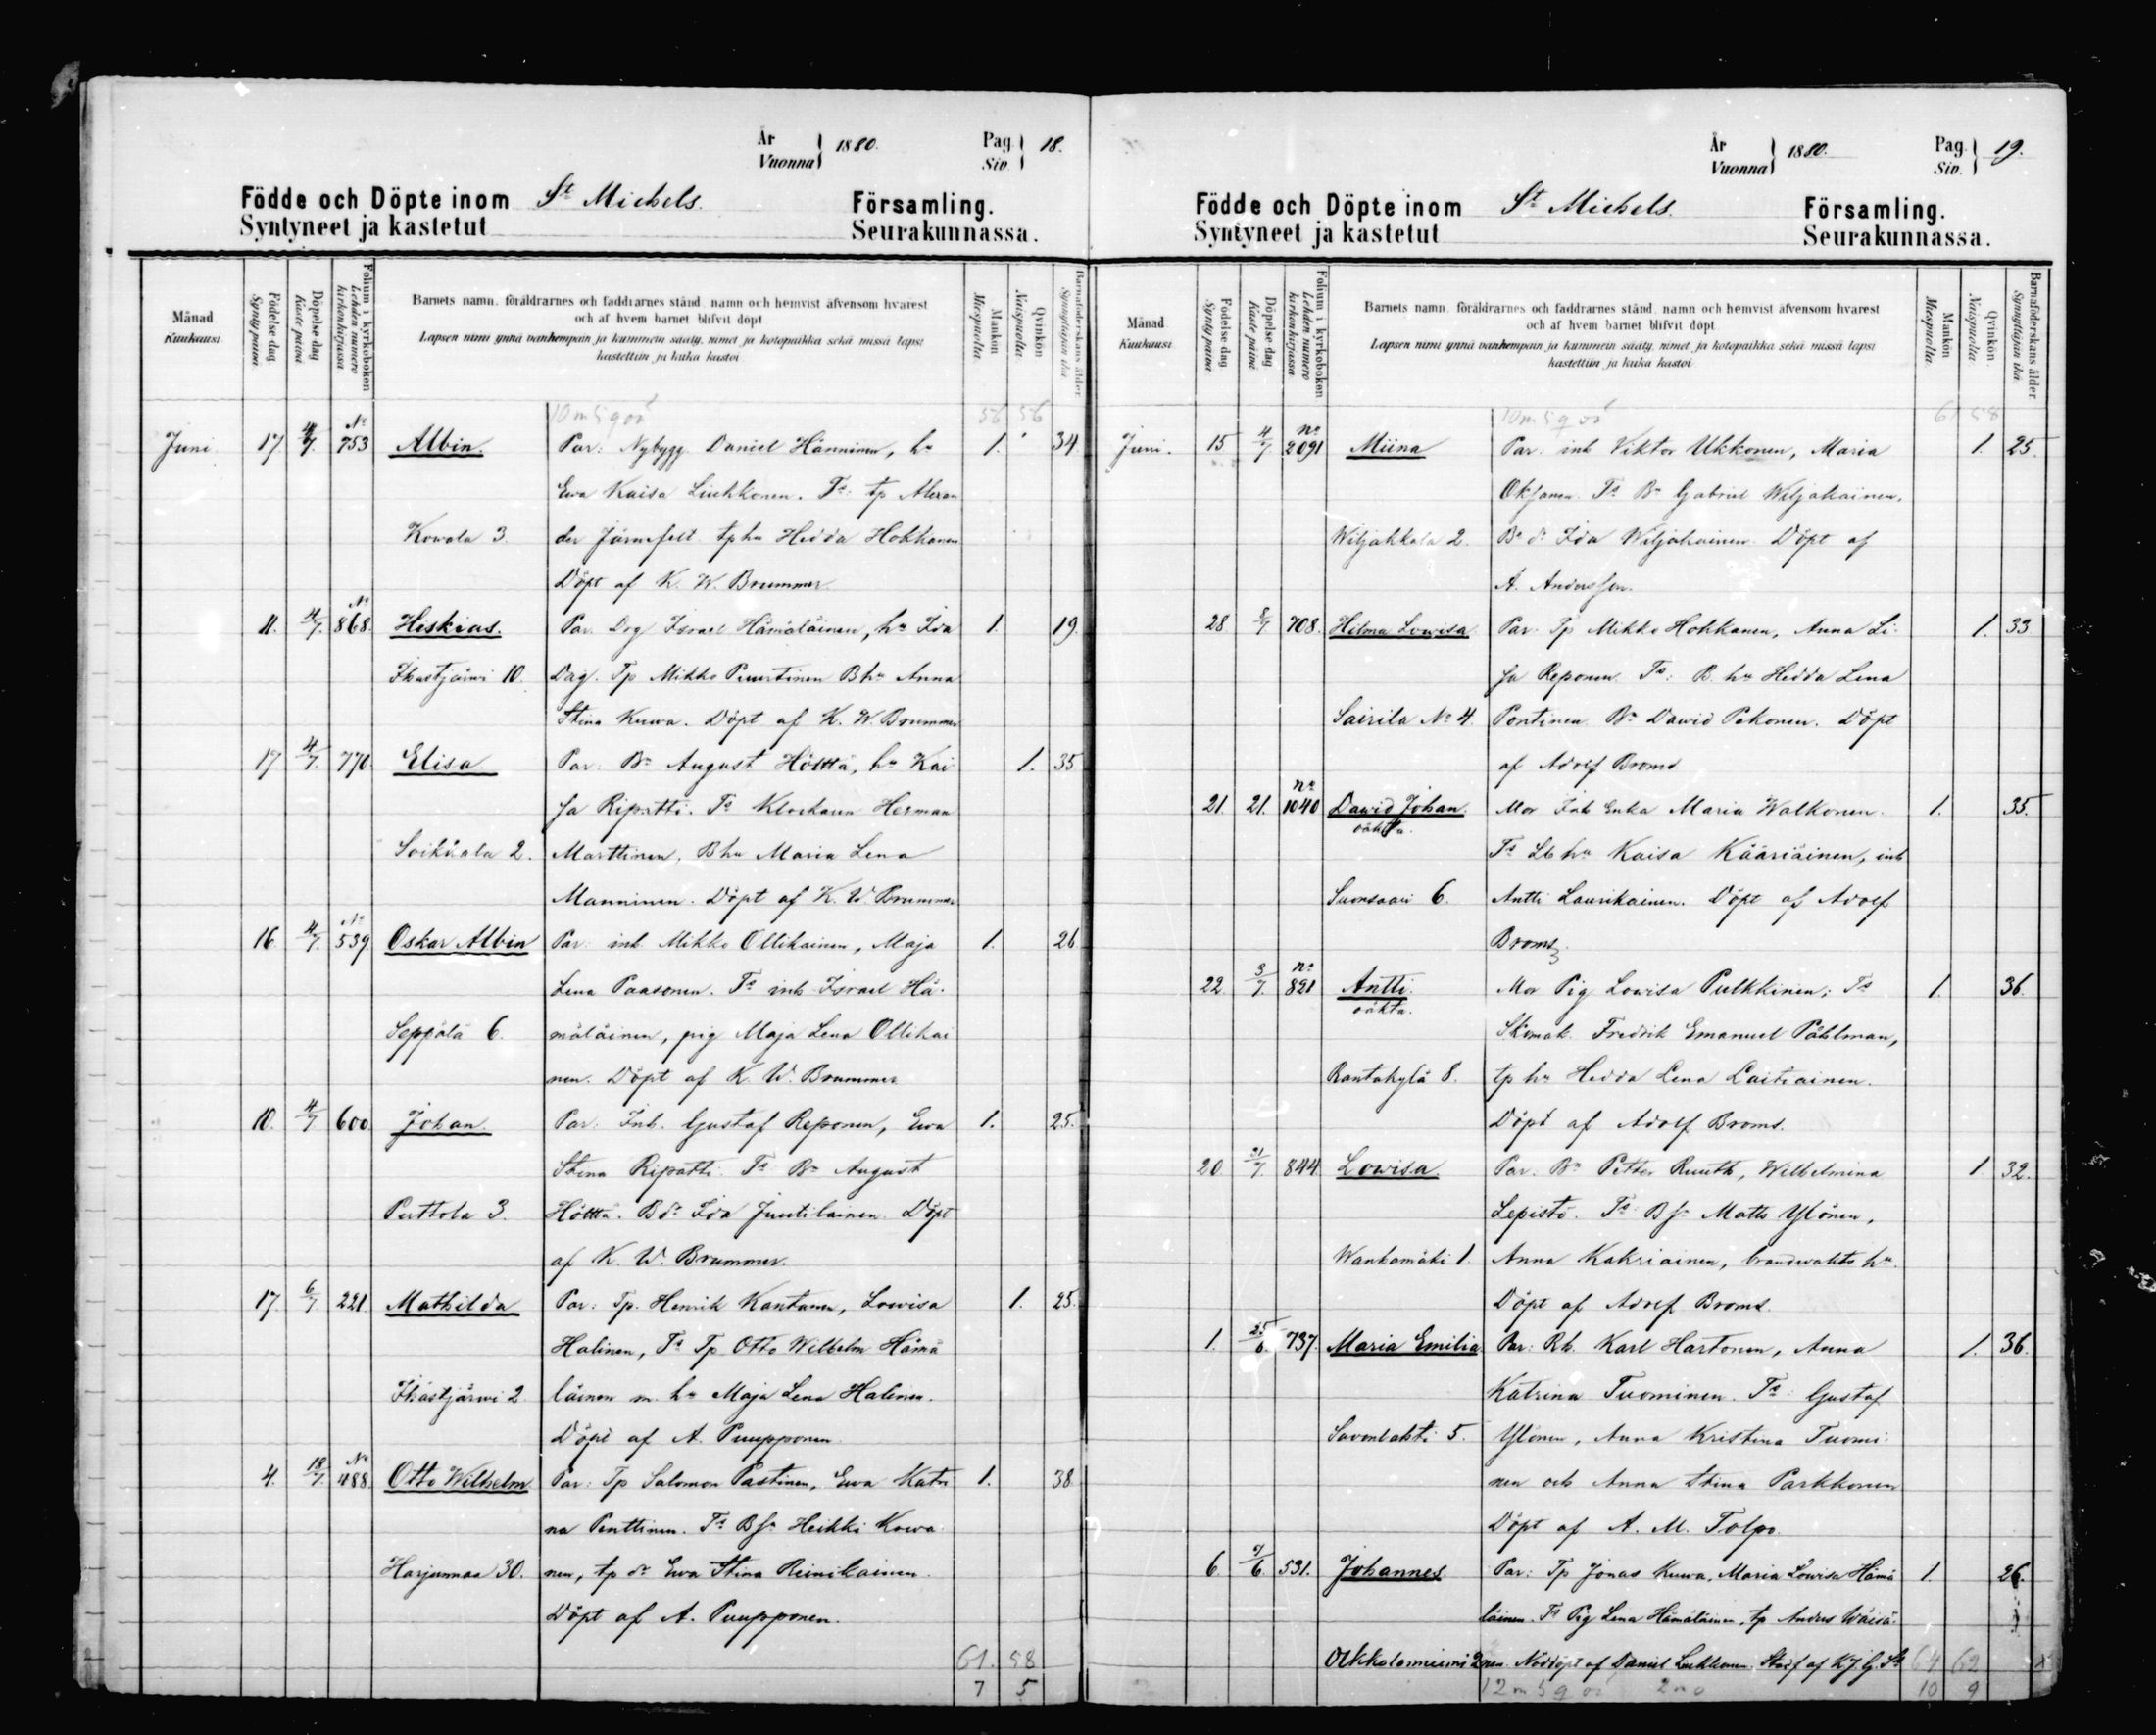 År
Vuonna 1880. Pag. Siv. 18.
Födde och Döpte inom St Michels. Församling.
Syntyneet ja kastetut Seurakunnassa.
Månad Kuukausi
Födelse dag. Synty päiwä.
Döpelse dag Kaste päiwä
Folium i kyrkoboken Lehden numero kirkonkirjassa.
Barnets namn, föräldrarnes och faddrarnes stånd, namn och hemvist äfvensom hvarest
och af hvem barnet blifvit döpt
Lapsen nimi ynnä vanhempain ja kummein sääty, nimet ja kotopaikka sekä missä lapsi
kastettiin ja kuka kastoi
Mankön Miespuolta.
Qvinkön Naispuolta.
Barnaföderskans ålder Synnyttäjän ikä
56 56
Juni 17 4/7. No 753 Albin. Par: Nybygg. Daniel Hänninen, hu 1. 34.
Ewa Kaisa Liukkonen. Ts: tp Alexan
Kowala 3. der Järnefelt tphu Hedda Hokkanen
Döpt af K. W. Brummer.
11. 4/7. No 868. Heskias. Par. Drg Israel Hämäläinen, hu Ida 1. 19.
Ikastjärwi 10. Dag. Tp Mikko Puurtinen Bhu Anna
Stina Kuwa. Döpt af K. W. Brummer
17 4/7. 770. Elisa. Par: Bn August Hölttä, hu Kai 1. 35
sa Ripatti. Ts Klockaren Herman
Soikkala 2. Marttinen, Bhu Maria Lena
Manninen. Döpt af K. W. Brummer
16 4/7. No 539 Oskar Albin Par: inh Mikko Ollikainen, Maja 1. 26
Lena Paasonen. Ts inh Israel Hä-
Seppälä 6. mäläinen, pig Maja Lena Ollikai
nen. Döpt af K. W. Brummer
10. 4/7 600 Johan. Par: Inh. Gustaf Reponen, Ewa 1. 25.
Stina Ripatti. Ts Bn August
Perttola 3. Hölttä. Bdr Ida Juutilainen. Döpt
af K. W. Brummer.
17. 6/7 221. Mathilda Par: Tp. Henrik Kantanen, Lowisa 1. 25.
Halinen, Ts Tp Otto Wilhelm Hämä
Ikastjärwi 2 läinen m. hu Maja Lena Halinen.
Döpt af A. Puupponen
4. 18/7. No 488. Otto Wilhelm Par: Tp Salomon Pastinen, Ewa Katri 1. 38
na Penttinen. Ts Bsn Heikki Kowa
Harjumaa 30. nen, tp dr Ewa Stina Reinikainen.
Döpt af A. Puupponen.
61. 58
7 5
År
Vuonna 1880. Pag. Siv. 19.
Födde och Döpte inom St Michels. Församling.
Syntyneet ja kastetut Seurakunnassa.
Månad Kuukausi
Födelse dag Synty päiwä
Döpelse dag Kaste päiwä
Folium i kyrkoboken Lehden numero kirkonkirjassa
Barnets namn, föräldrarnes och faddrarnes stånd, namn och hemvist äfvensom hvarest
och af hvem barnet blifvit döpt
Lapsen nimi ynnä vanhempain ja kummein sääty, nimet ja kotopaikka sekä missä lapsi
kastettiin ja kuka kastoi
Mankön Miespuolta.
Qvinkön Naispuolta.
Barnaföderskans ålder Synnyttäjän ikä
61 58
Juni. 15 4/7 no 2091 Miina Par: inh Viktor Ukkonen, Maria 1. 25.
Oksanen. Ts Bn Gabriel Wiljakainen,
Wiljakkala 2. Bn dr Ida Wiljakainen. Döpt af
A. Andersson.
28 8/7 708. Hilma Lowisa Par: Tp Mikko Hokkanen, Anna Li- 1. 33.
sa Reponen. Ts: B. hu Hedda Lena
Sairila No 4. Pontinen Bn Dawid Pekonen. Döpt
af Adolf Broms
21. 21. no 1040 Dawid Johan. Mor Inh Enka Maria Walkonen. 1. 35.
oäkta. Ts Lb hu Kaisa Kääriäinen, inh
Suonsaari 6. Antti Laurikainen. Döpt af Adolf
Broms.
22. 3/7. no 821 Antti. Mor Pig Lowisa Pulkkinen; Ts 1. 36.
oäkta. Skomak. Fredrik Emanuel Påhlman,
Rantakylä 8. tp hu Hedda Lena Laitiainen.
Döpt af Adolf Broms.
20. 21/7. 844. Lowisa. Par. Bn Petter Ruuth, Wilhelmina 1 32.
Lepistö. Ts Bsn Matts Ylönen,
Wanhamäki 1. Anna Kakriainen, brandwakts hu.
Döpt af Adolf Broms.
1. 25/6. 737. Maria Emilia Par: Rh. Karl Hartonen, Anna 1. 36.
Katrina Tuominen. Ts: Gustaf
Savonlahti 5. Ylönen, Anna Kristina Tuomi
nen och Anna Stina Parkkonen
Döpt af A. M. Tolpo.
6. 7/6 531. Johannes Par: Tp Jonas Kuwa, Maria Lowisa Hämä 1. 26.
läinen. Ts Pig Lena Hämäläinen, tp Anders Wäisä-
Olkkolanniemi 2 nen. Nöddöpt af Daniel Liukkonen. 64 62
10 9